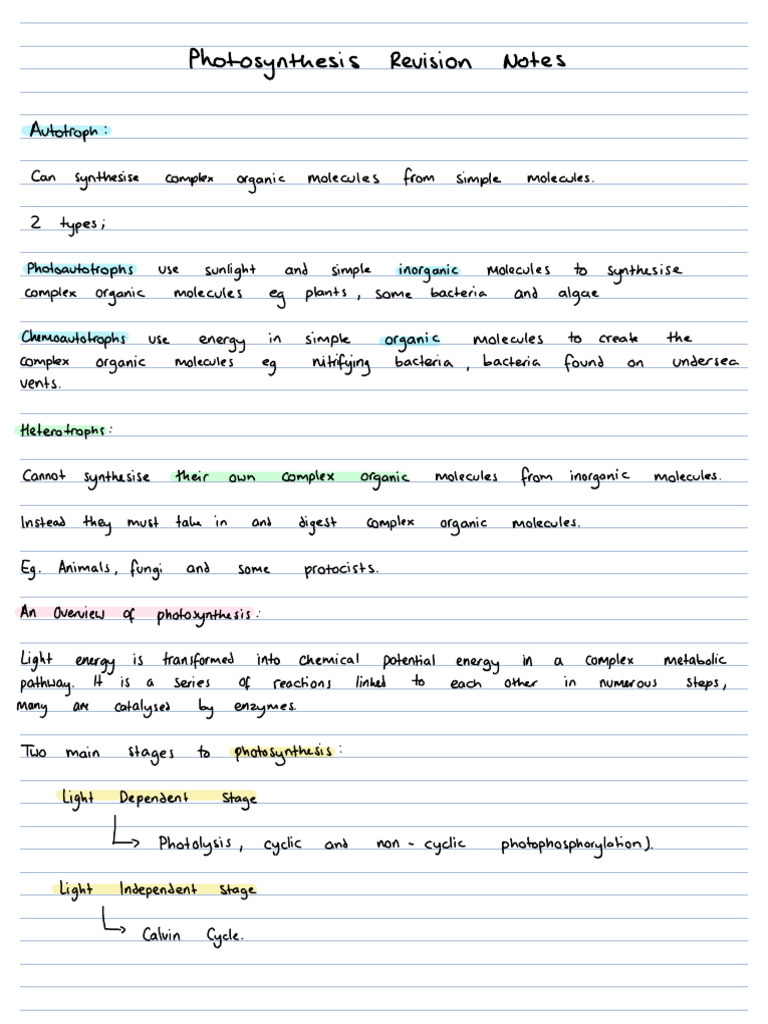 Photosynthesis Revision Notes
Autotroph:
Can synthesise complex organic molecules from simple molecules.
2 types;
Photoautotrophs use sunlight and simple inorganic molecules to synthesise
complex organic molecules eg plants, some bacteria and algae
Chemoautotrophs use energy in simple organic molecules to create the
complex organic molecules eg nitifying bacteria, bacteria found on undersea
vents.
Heterotrophs:
Cannot synthesise their own complex organic molecules from inorganic molecules.
Instead they must take in and digest complex organic molecules.
Eg. Animals, fungi and some protocists.
An Overview of photosynthesis:
Light energy is transformed into chemical potential energy in a complex metabolic
pathway. It is a series of reactions linked to each other in numerous steps,
many are catalysed by enzymes.
Two main stages to photosynthesis:
Light Dependent Stage
Photolysis, cyclic and non-cyclic photophosphorylation).
Light Independent Stage
Calvin Cycle.